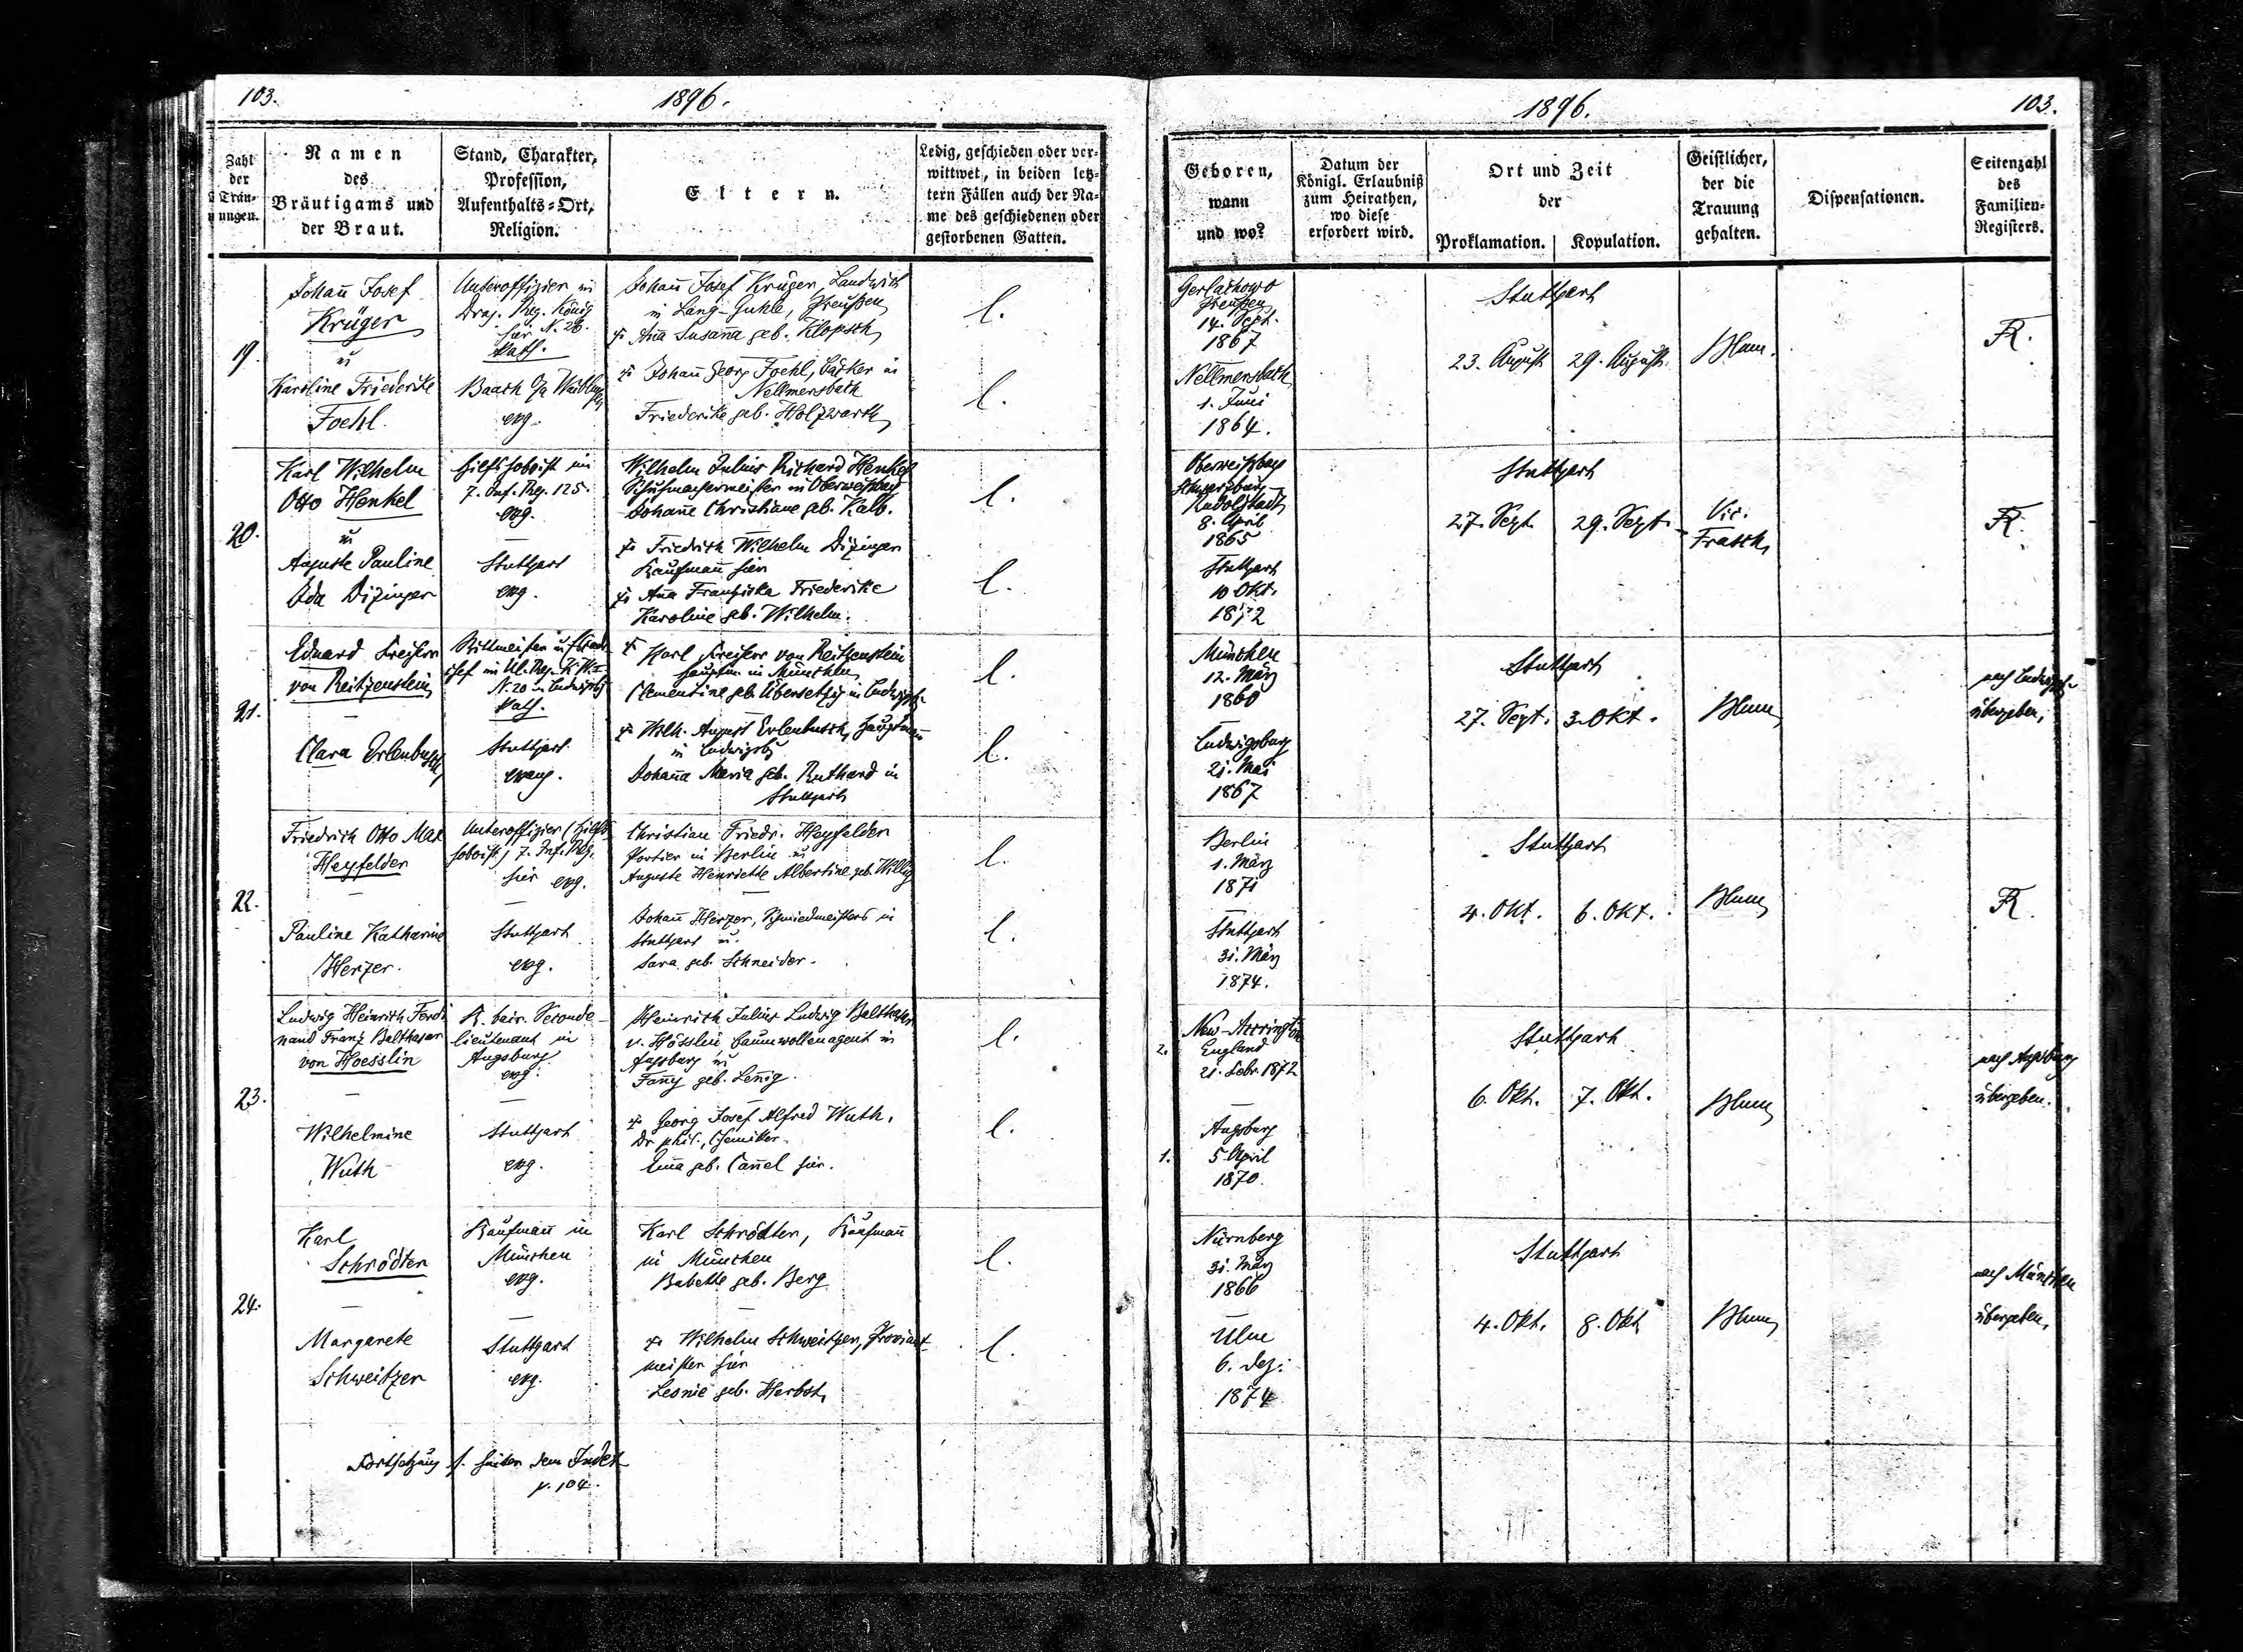 103.
1896.
Zahl der Trau-ungen.
Namen des Bräutigams und der Braut.
Stand, Charakter, Profession, Aufenthalts-Ort, Religion.
Eltern.
Ledig, geschieden oder verwittwet, in beiden letztern Fällen auch der Name des geschiedenen oder gestorbenen Gatten.
19.
Johañ Josef
Krüger
u
Karoline Friederike
Foehl.
Unteroffizier im
Drag. Reg. König
hier N. 26.
kath.
Baach
evg.
Johañ Josef Krüger, Landwirth
in Lang-Guhle, Preußen
Aña Susaña geb. Klopsch
Johañ Georg Foehl, Bäcker in
Nellmersbach
Friederike geb. Holzwarth
l.
l.
20.
Karl Wilhelm
Otto Henkel
u
Auguste Pauline
Ida Dizinger
Hilfshoboist im
7. Inf. Reg. 125.
evg.
Stuttgart
evg.
Wilhelm Julius Richard Henkel
Schuhmachermeister in Oberweißbach
Johañe Christiane geb. Kalb.
Friedrich Wilhelm Dizinger
Kaufmañ hier
Aña Franziska Friederike
Karoline geb. Wilhelm.
l.
l.
21.
Eduard Freiherr
von Reitzenstein
Clara Erlenbusch
Rittmeister u.
chef im Ul. Reg. K. W. I
N. 20 in Ludwigsbg
kath.
Stuttgart
evang.
Karl Freiherr von Reitzenstein
Hauptm. in München
Clementine geb. in Ludwigsb.
Wilh. August Erlenbusch, Hauptmañ
in Ludwigsbg
Johaña Maria geb. Ruthard in
Stuttgart
l.
l.
22.
Friedrich Otto Max
Heyfelder
Pauline Katharine
Herzer.
Unteroffizier (Hilfs-
hoboist) 7. Inf. Reg.
hier evg.
Stuttgart
evg.
Christian Friedr. Heyfelder
Portier in Berlin u
Auguste Henriette Albertine geb. Willig
Johañ Herzer, Schmiedmeisters in
Stuttgart u.
Sara geb. Schneider.
l.
l.
23.
Ludwig Heinrich Ferdi
nand Franz Balthasar
von Hoesslin
Wilhelmine
Wuth
K. bair. Seconde-
lieutenant in
Augsburg
evg.
Stuttgart
evg.
Heinrich Julius Ludwig Balthasar
v. Hösslin Baumwollenagent in
Augsburg u
Fañy geb. Lenig.
Georg Josef Alfred Wuth,
Dr phil., Chemiker.
Eṁa geb. Cañel hier.
l.
l.
24.
Karl
Schrödter
Margarete
Schweitzer
Kaufmañ in
München
evg.
Stuttgart
evg.
Karl Schrödter, Kaufmañ
in München
Babette geb. Berg
Wilhelm Schweitzer, Proviant
meister hier
Leonie geb. Herbst
l.
l.
Fortsetzung s. hinter dem Index
p. 104.
1896.
103.
Geboren, wann und wo?
Datum der Königl. Erlaubniß zum Heirathen, wo diese erfordert wird.
Ort und Zeit der
Proklamation.
Kopulation.
Geistlicher, der die Trauung gehalten.
Dispensationen.
Seitenzahl des Familien-Registers.
Gerlachowo
Preußen
14. Sept.
1867
Nellmersbach
1. Juni
1864.
Stuttgart
23. August
29. August.
Blum.
FR.
Oberweißbach
Schwarzburg-
Rudolstadt
8. April
1865
Stuttgart
10 Okt.
1872
Stuttgart
27. Sept.
29. Sept.
Vic.
Frasch
FR.
München
12. März
1860
Ludwigsburg
21. Mai
1867
Stuttgart
27. Sept.
3. Okt.
Blum
nach Ludwigsb.
übergeben,
Berlin
1. März
1871
Stuttgart
31. März
1874.
Stuttgart
4. Okt.
6. Okt.
Blum
FR.
2.
New-Accrington
England
21. Febr. 1872
1.
Augsburg
5. April
1870.
Stuttgart
6. Okt.
7. Okt.
Blum
nach Augsburg
übergeben.
Nürnberg
31. März
1866
Ulm
6. Dez.
1874
Stuttgart
4. Okt.
8. Okt
Blum
nach München
übergeben,